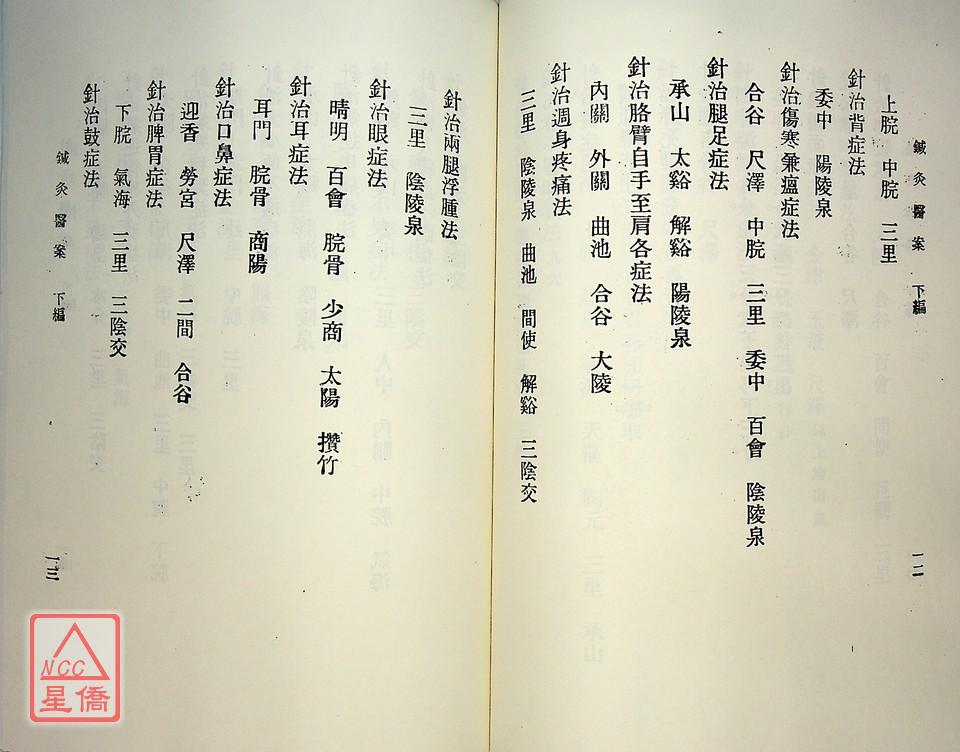 鍼灸醫案 下編
一二
上脘 中脘 三里
針治背症法
委中 陽陵泉
針治傷寒兼瘟症法
合谷 尺澤 中脘 三里 委中 百會 陰陵泉
針治腿足症法
承山 太谿 解谿 陽陵泉
針治胳臂自手至肩各症法
內關 外關 曲池 合谷 大陵
針治週身疼痛法
三里 陰陵泉 曲池 間使 解谿 三陰交
針治兩腿浮腫法
三里 陰陵泉
針治眼症法
睛明 百會 脘骨 少商 太陽 攢竹
針治耳症法
耳門 脘骨 商陽
針治口鼻症法
迎香 勞宮 尺澤 二間 合谷
針治脾胃症法
下脘 氣海 三里 三陰交
針治鼓症法
鍼灸醫案 下編
一三
NCC
星僑